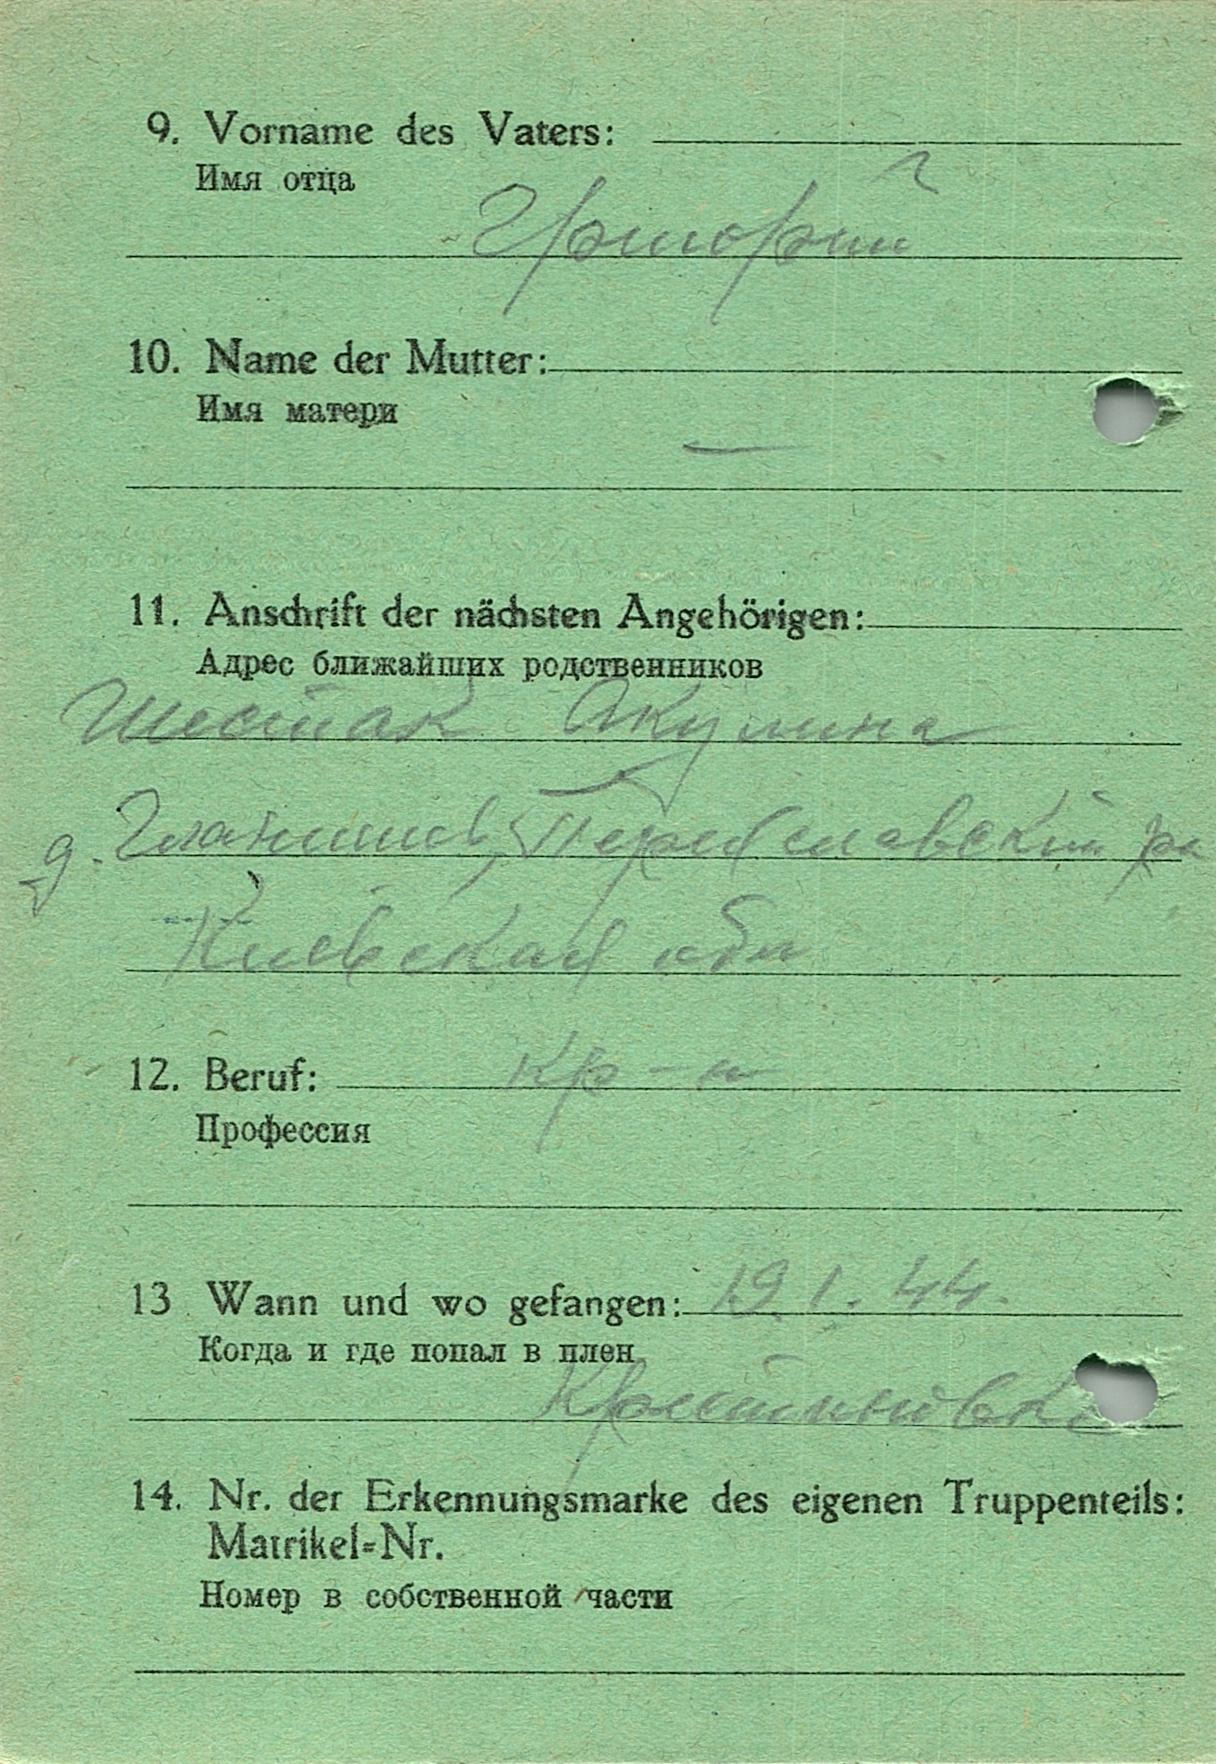 9. Vorname des Vaters:
Имя отца
Григорий
10. Name der Mutter:
Имя матери
—
11. Anschrift der nächsten Angehörigen:
Адрес ближайших родственников
Шестак Акулина
д. Переяславский
Киевская обл
12. Beruf: кр-н
Профессия
13 Wann und wo gefangen: 19.1.44.
Когда и где попал в плен
14. Nr. der Erkennungsmarke des eigenen Truppenteils:
Matrikel=Nr.
Номер в собственной части